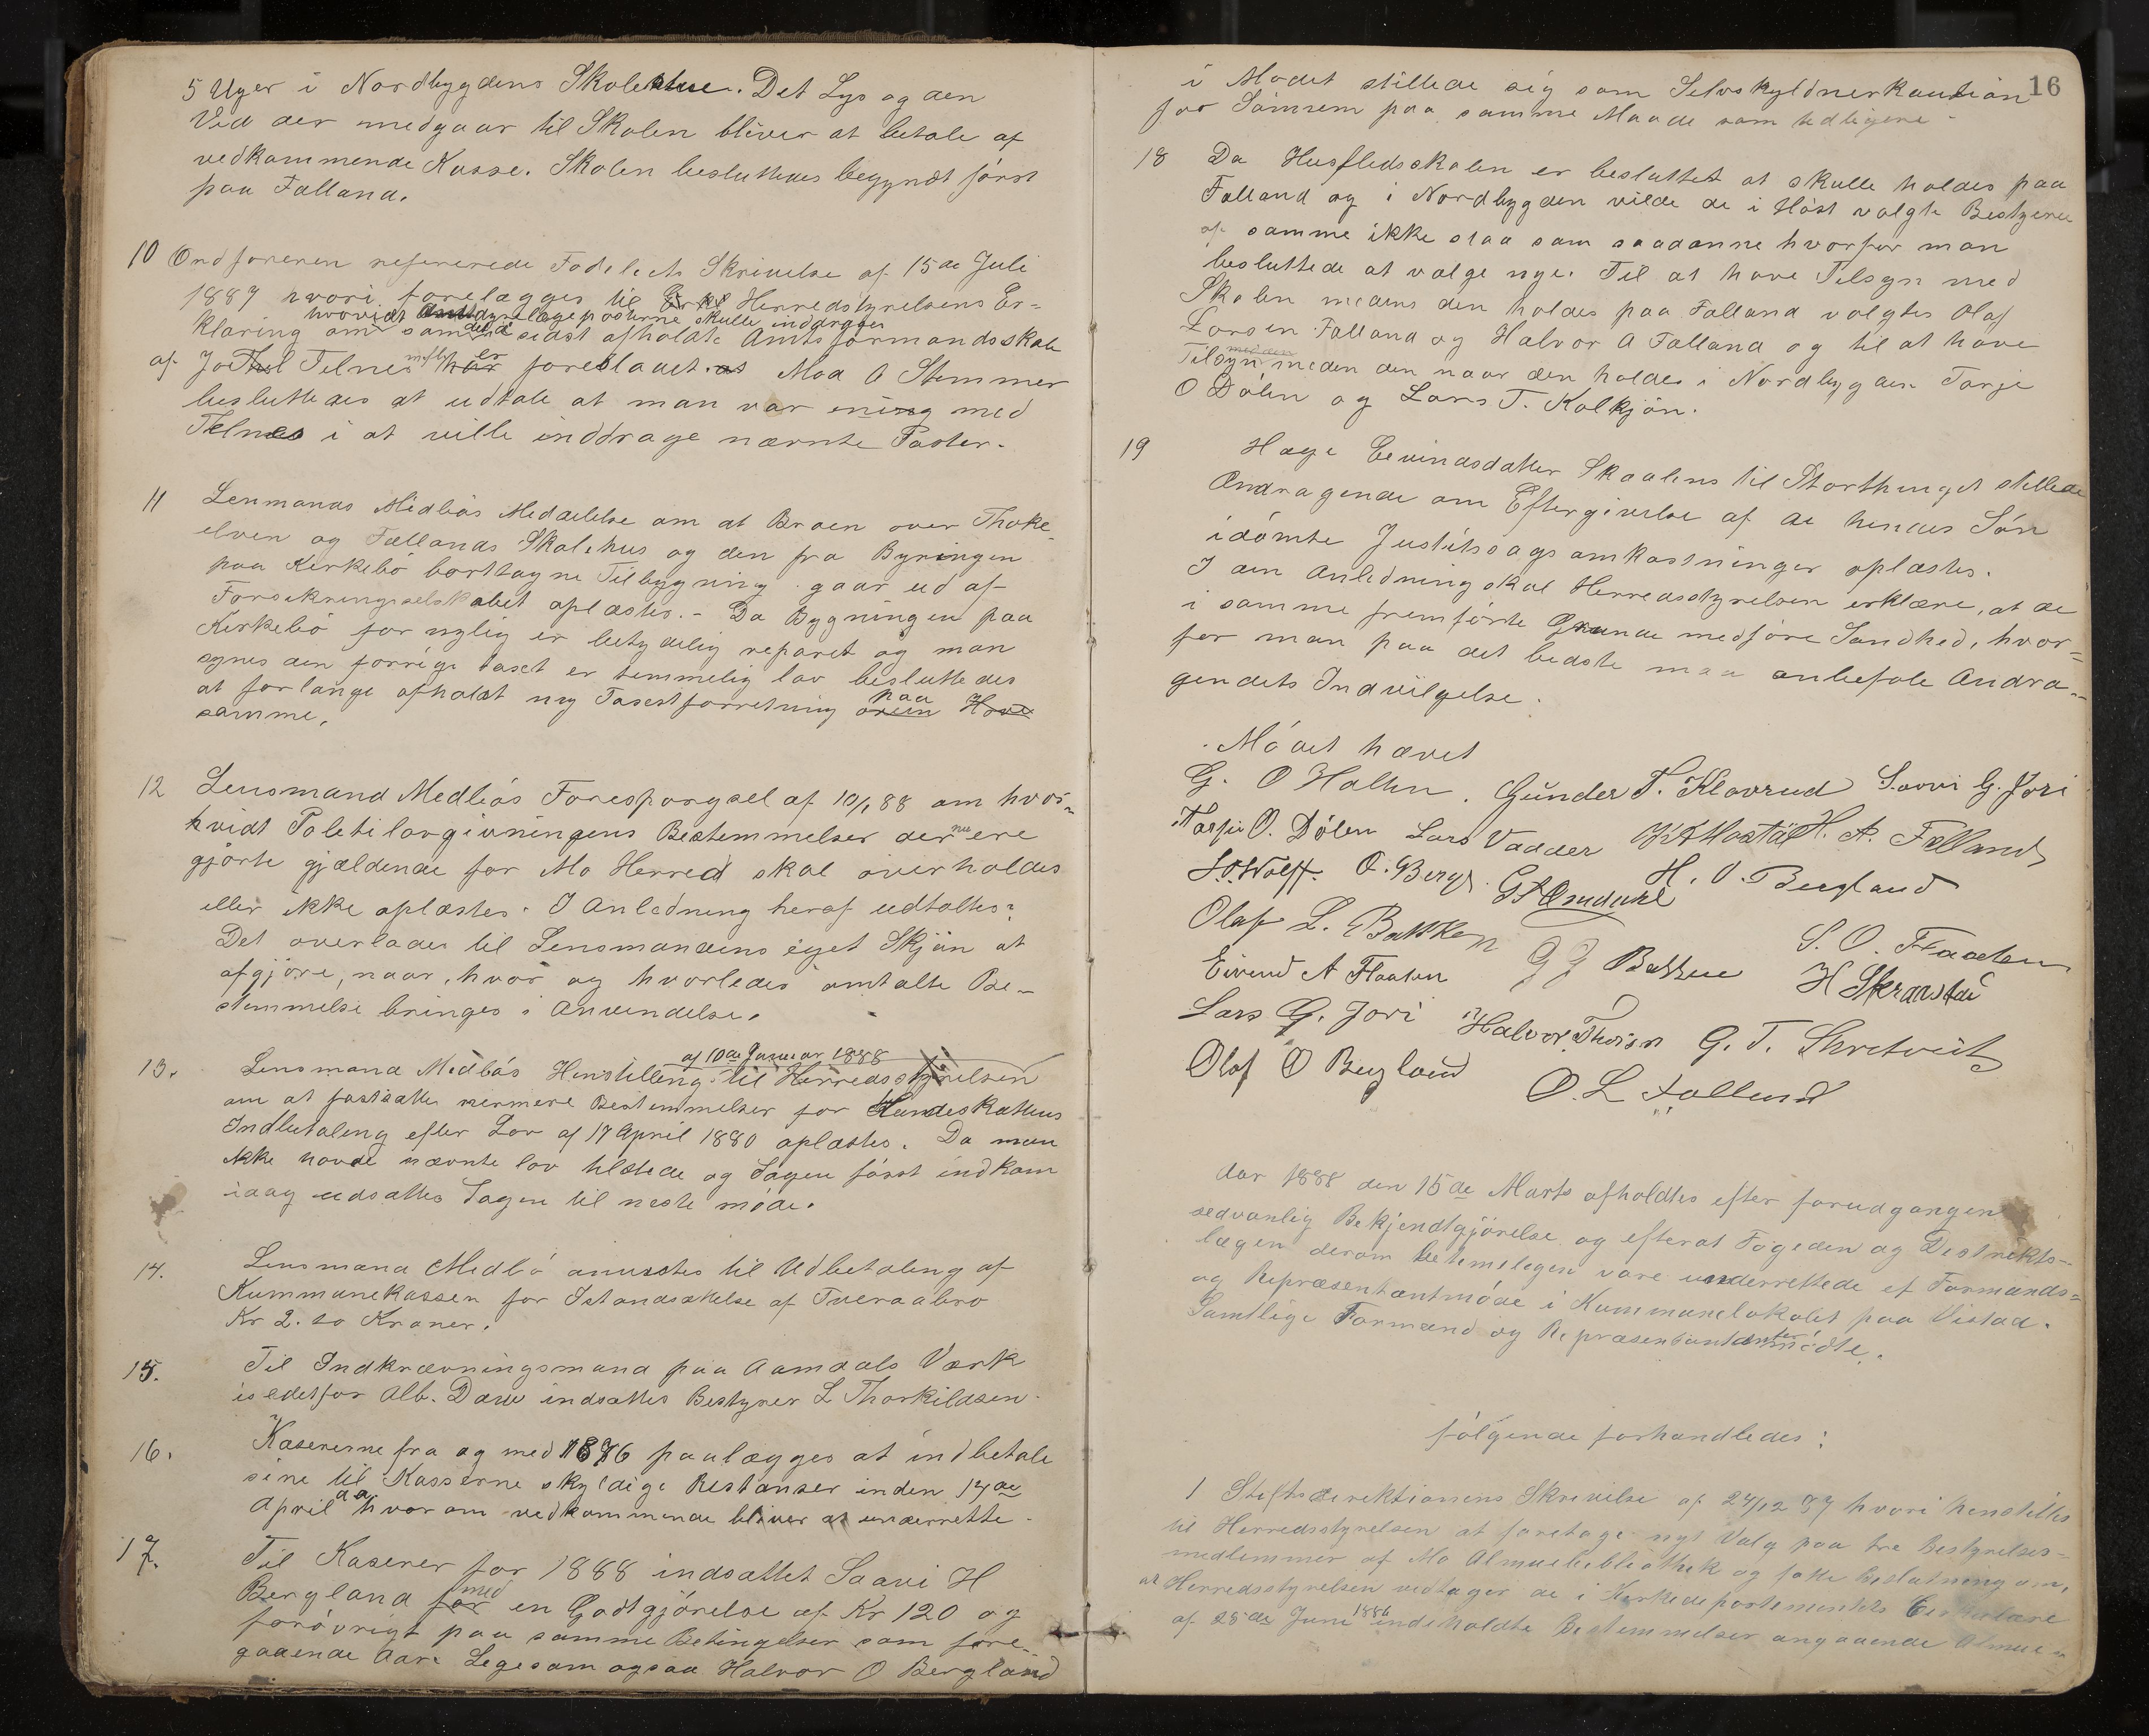 5 Uger i Nordbygdens Skolestue. Det Lys og den
Ved der medgaar til Skolen bliver at betale af
vedkommende Kasse. Skolen besluttedes begyndt först
paa Falland.
10 Ordföreren refererede Fodelets Skrivelse af 15de Juli
1887 hvori forelægges til Herredstyrelsens Er=
hvorvidt lægeposterne skulle inddrages
klaring om som sidst afholdte Amtsformandsskab
af Telnes er foreslaaet. Mod 9 Stemmer
besluttedes at udtale at man var enig med
Telnes i at ville inddrage nævnte Poster.
11 Lensmands Medbös Meddelelse om at Broen over Thoke
elven og Fallands Skolehus og den fra Bygningen
paa Kirkebö borttagne Tilbygning gaar ud af
Forsikringsselskabet oplæstes. - Da Bygningen paa
Kirkebö for nylig er betydelig reparet og man
synes den forrige Taxt er temmelig lav besluttedes
at forlange afholdt ny Taxtforretning paa
samme.
12 Lensmand Medbös Forespörgsel af 10/1 88 om hvor=
hvidt Politilovgivningens Bestemmelser der nu ere
gjörte gjældende for Mo Herred skal overholdes
eller ikke oplæstes. I Anledning heraf udtaltes:
Det overlades til Lensmandens eget Skjön at
afgjöre, naar, hvor og hvorledes omtalte Be-
stemmelse bringes i Anvendelse.
13. af 10de Januar 1888
Lensmand Medbös Henstilling til Herredsstyrelsen
om at fastsætte nermere Bestemmelser for Hundeskattens
Indbetaling efter Lov af 17 April 1880 oplæstes. Da man
ikke havde nævnte lov tilstede og Sagen först indkom
idag udsattes Sagen til neste möde.
14. Lensmand Medbö anvistes til Udbetaling af
Kummunekassen for Istandsættelse af Tveraabro
Kr 2.20 Kroner.
15. Til Indkrævningsmand paa Aamdals Værk
istedetfor Alb. Daw indsattes Bestyrer L Thorkildsen.
16. Kasererne fra og med 1886 paalægges at indbetale
sine til Kasserne skyldige Restanser inden 14de
April d.a. hvorom vedkommende bliver at underrette.
17. Til Kaserer for 1888 indsattet Saavi H
Bergland med en Godtgjörelse af Kr 120 og
forövrigt paa samme Betingelser som fore-
gaaende Aar. Legesom ogsaa Halvor O Bergland
16
i Mödet stillede sig som Selvskyldnerkaution
for Summen paa samme Maade som tidligere -
18 Da Husflidsskolen er besluttet at skulle holdes paa
Falland og i Nordbygden vilde de i Höst valgte Bestyrere
af samme ikke staa som saadanne hvorfor man
besluttede at vælge nye. Til at have Tilsyn med
Skolen medens den holdes paa Falland valgtes Olaf
Larsen Falland og Halvor A Falland og til at have
Tilsyn med den naar den holdes i Nordbygden Tarje
O Dölen og Lars T. Kolkjön.
19 Hæge Eivindsdatter Skaalens til Storthinget stillede
Andragende om Eftergivelse af de hendes Sön
idömte Justitssagsomkostninger oplæstes.
I den Anledning skal Herredsstyrelsen erklære, at de
i samme fremförte Grunde medföre Sandhed, hvor=
for man paa det bedste maa anbefale Andra-
gendets Indvilgelse.
Mödet hævet
G. O Holten. Gunder T. Klovrud Saavi G. Jori
Tarjei O. Dölen Lars Vadder H. A. Falland
O. Berge. H. O. Bergland
Olaf L. Bakken G G Bakken S. O. Flaaten
Eivend A Flaaten H Skranstad
Lars G. Jori Halvor G. T. Skretveit
Olaf O Bergland O. L Falland
Aar 1888 den 15de Marts afholdtes efter forudgangen
sedvanlig Bekjendtgjörelse og efterat Fogeden og Destrikts-
lægen derom betimelegen vare underrettede et Formands=
og Repræsentantmöde i Kummunelokalet paa Vistad.
Samtlige Formænd og Repræsentanter mödte.
fölgende forhandledes:
1 Stiftsdirektionens Skrivelse af 24/12 87 hvori henstilles
til Herredsstyrelsen at foretage nyt Valg paa tre Bestyrelses-
medlemmer af Mo Almuebibliothek og fatte Beslutning om,
at Herredsstyrelsen vedtager de i Kirkedepartementets Cirkulære
af 28de Juni 1886 indeholdte Bestemmelser angaaende Almue=